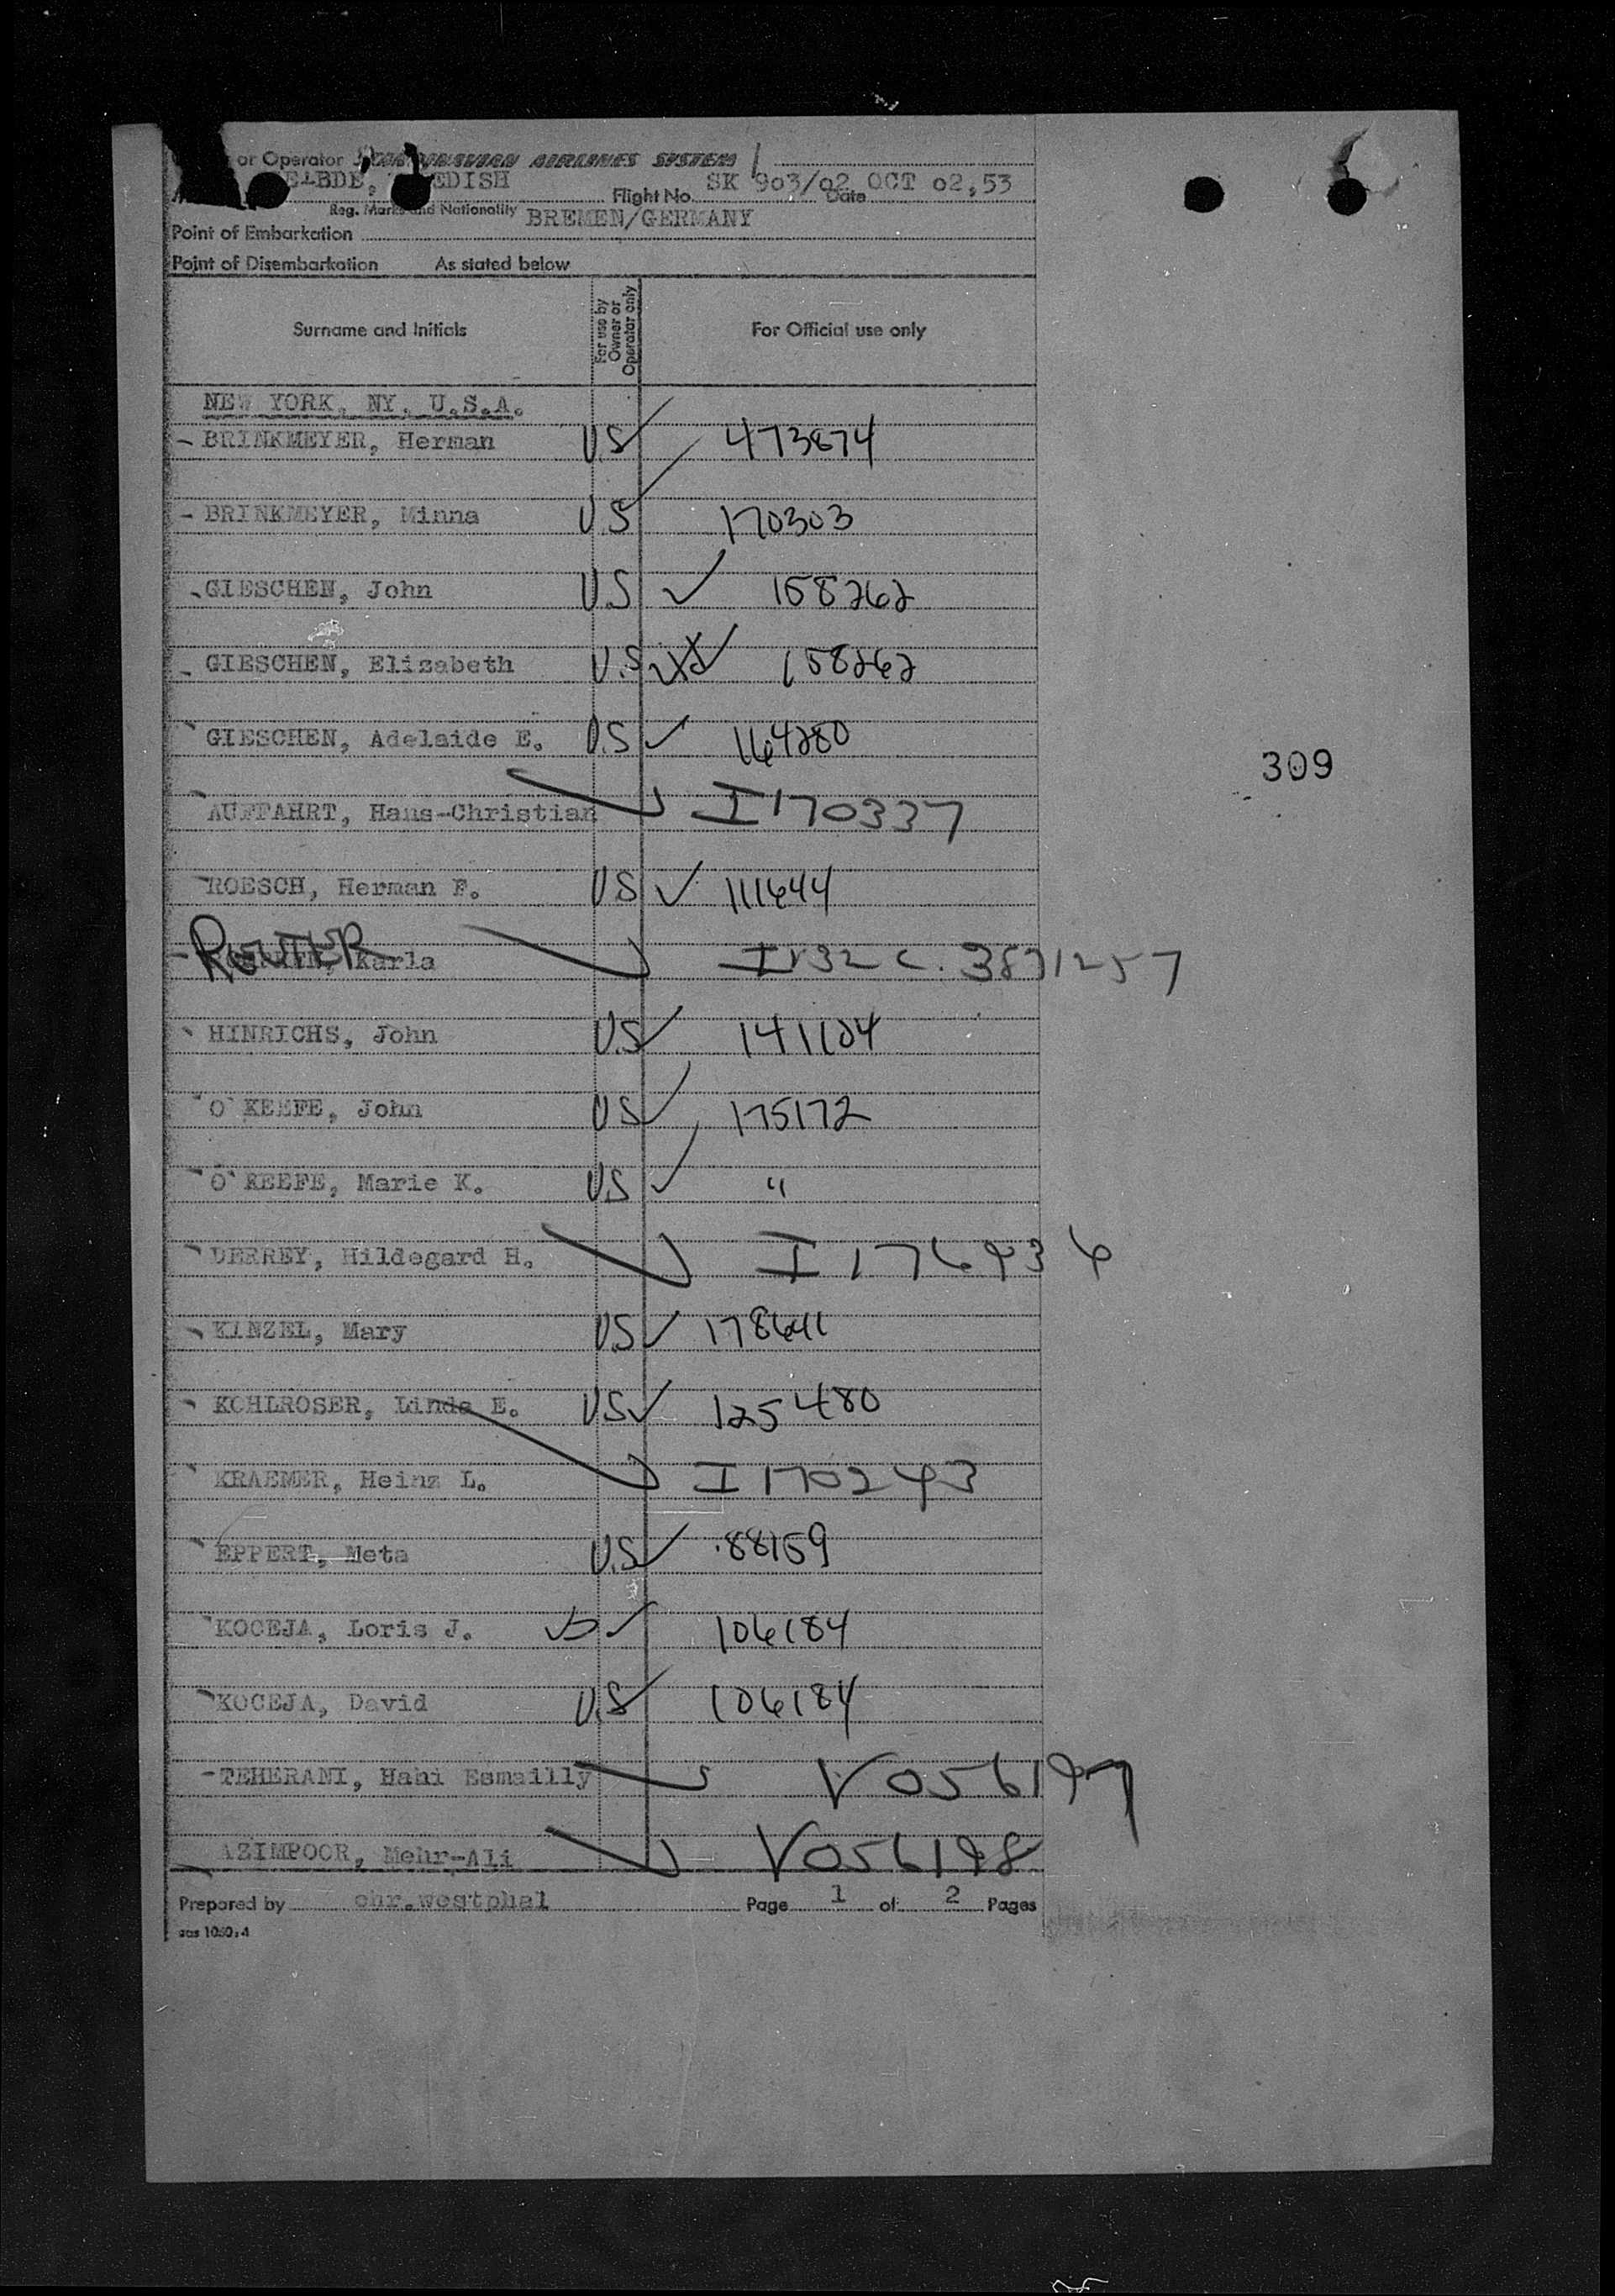 or Operator SCANDINAVIAN AIRLINES SYSTEM
SE-BDE, SWEDISH Flight No. SK 903/02 OCT Date 02,53
Reg. Marks and Nationality
Point of Embarkation BREMEN/GERMANY
Point of Disembarkation As stated below
Surname and Initials For use by Owner or Operator only For Official use only
NEW YORK, NY, U.S.A.
- BRINKMEYER, Herman U.S ✓ 473874
- BRINKMEYER, Minna U.S ✓ 170303
GIESCHEN, John U.S ✓ 158262
GIESCHEN, Elizabeth U.S ✓ 158262
GIESCHEN, Adelaide E. U.S ✓ 164280
309
AUFFAHRT, Hans-Christian I 170337
ROESCH, Herman F. U.S ✓ 111644
- REUTER Karla I 132 C. 3831257
HINRICHS, John U.S ✓ 141104
O'KEEFE, John U.S ✓ 175172
O'KEEFE, Marie K. U.S ✓ "
DERREY, Hildegard H. I 176436
KINZEL, Mary U.S ✓ 178641
KOHLROSER, Linda E. U.S ✓ 125480
KRAEMER, Heinz L. I 170243
EPPERT, Meta U.S ✓ 88159
KOCEJA, Loris J. ✓ 106184
KOCEJA, David U.S ✓ 106184
- TEHERANI, Hahi Esmailly V056197
AZIMPOOR, Mehr-Ali V056198
Prepared by chr.westphal Page 1 of 2 Pages
sas 1060:4